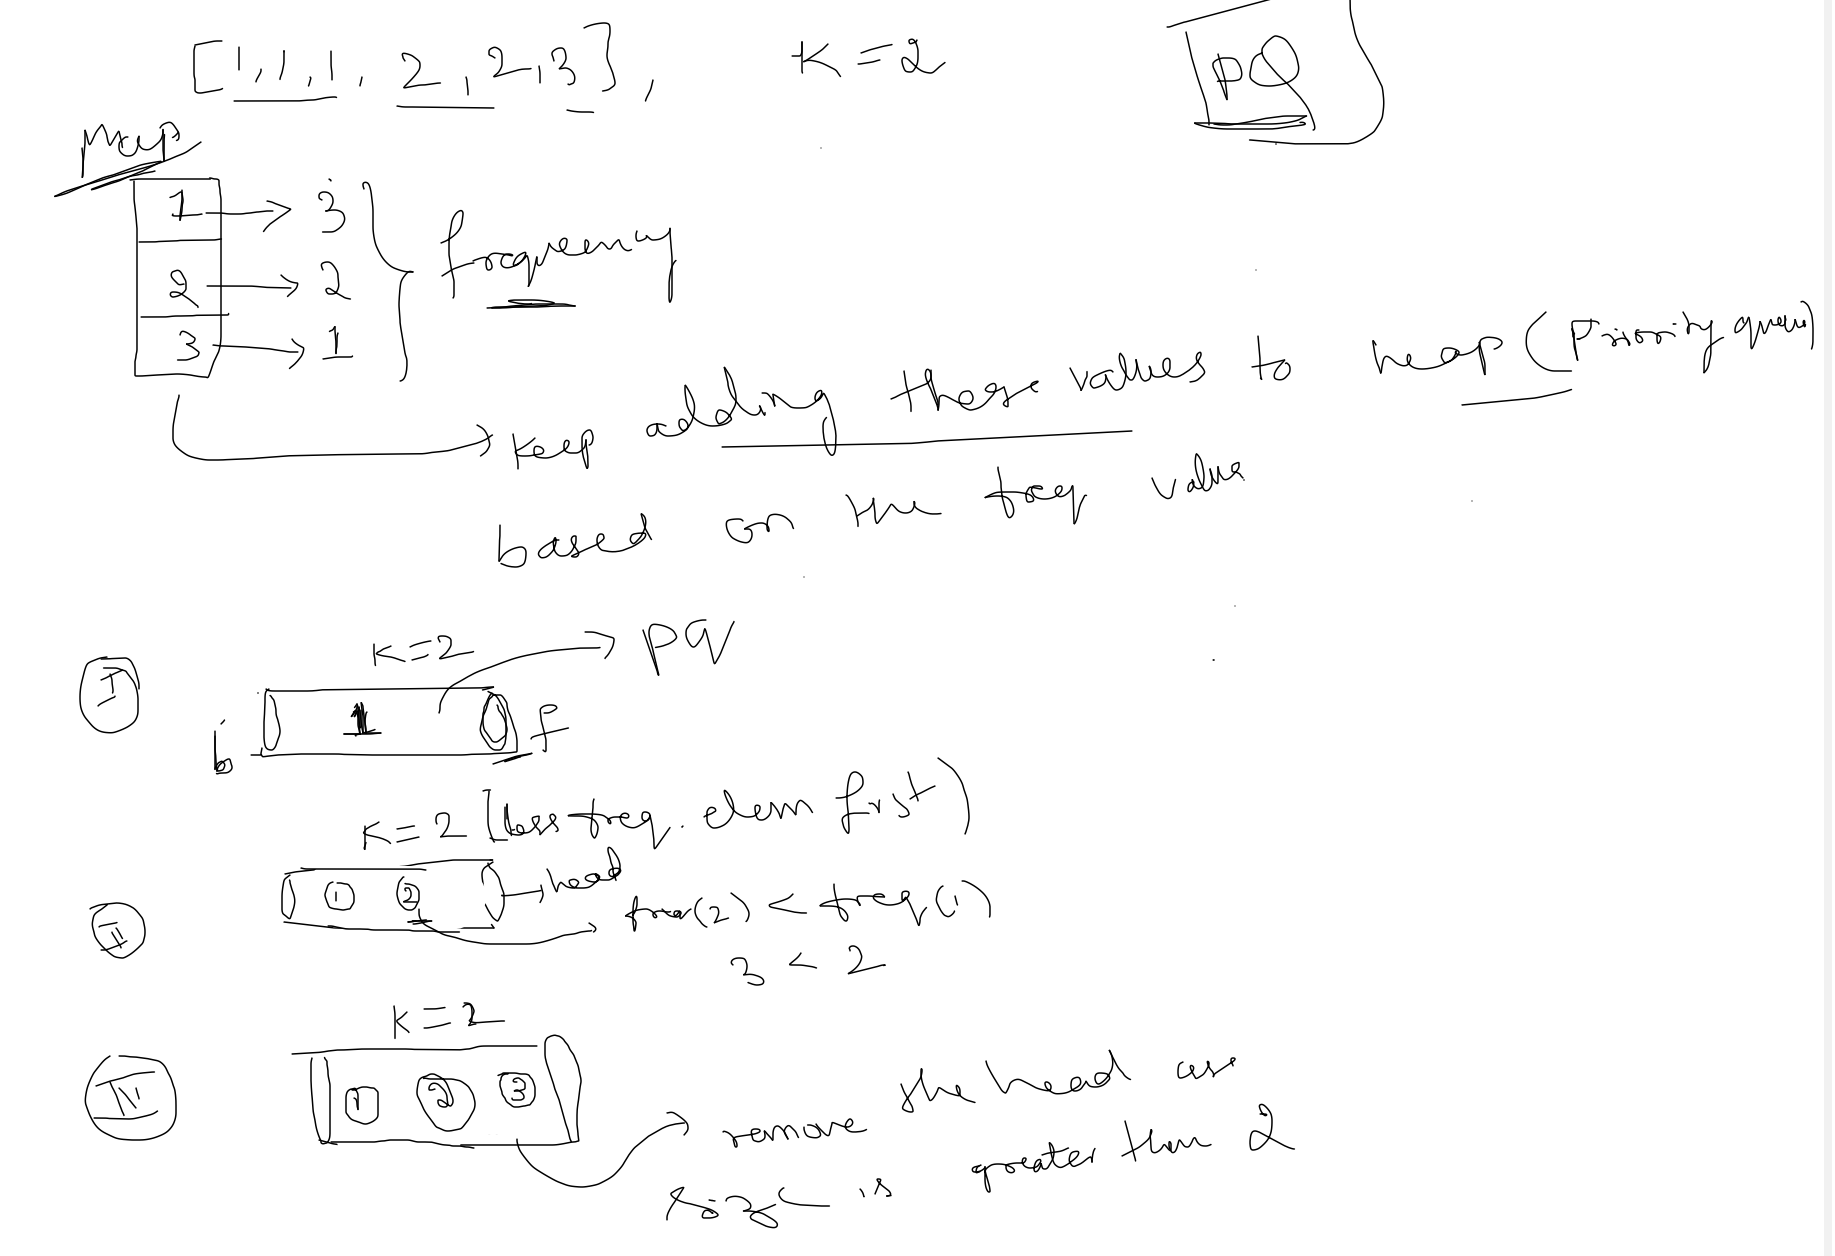 [1,1,1, 2,2,3], K=2 PQ
Map
1 → 3
2 → 2
3 → 1
frequency
keep adding these values to heap (Priority queue)
based on the freq value
I
K=2 → pq
b 1 f
K=2 [less freq. elem first)
II
1 2 → head
freq(2) < freq(1)
3 < 2
K=2
1 2 3
remove the head as
size is greater than 2